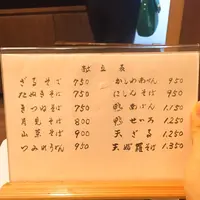 献立表
ざるそば 750
たぬきそば 750
きつねそば 750
月見そば 800
山菜そば 900
つみれうどん 950
かしわあん 950
にしんそば 950
鴨なんばん 1.150
鴨せいろ 1.250
天ざる 1.250
天婦羅そば 1.350